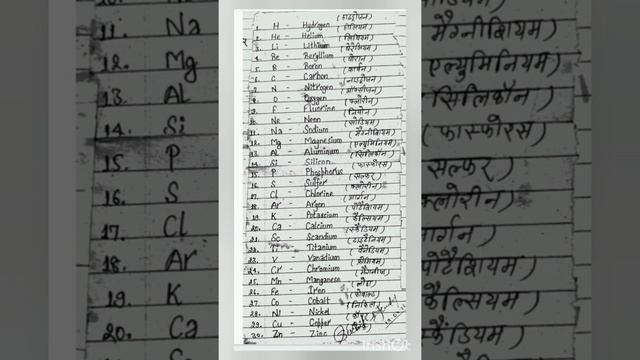 (हाइड्रोजन)
1. H - Hydrogen (हीलियम)
2. He - Helium (लिथियम)
3. Li - Lithium (बेरिलियम)
4. Be - Beryllium (बोरान)
5. B - Boron (कार्बन)
6. C - Carbon (नाइट्रोजन)
7. N - Nitrogen (ऑक्सीजन)
8. O - Oxygen (फ्लोरीन)
9. F - Fluorine (नियोन)
10. Ne - Neon (सोडियम)
11. Na - Sodium (मैग्नीशियम)
12. Mg - Magnesium (एल्युमिनियम)
13. Al - Aluminum (सिलिकॉन)
14. Si - Silicon (फास्फोरस)
15. P - Phosphorus (सल्फर)
16. S - Sulfer (क्लोरीन)
17. Cl - Chlorine (आर्गन)
18. Ar - Argon (पोटैशियम)
19. K - Potassium (कैल्सियम)
20. Ca - Calcium (स्कैंडियम)
21. Sc - Scandium (टाइटैनियम)
22. Ti - Titanium
23. V - Vanadium
24. Cr - Chromium
25. Mn - Manganese (लोहा)
26. Fe - Iron
27. Co - Cobalt
28. Ni - Nickel
29. Cu - Copper
30. Zn - Zinc
11. Na
12. Mg
13. Al
14. Si
15. P
16. S
17. Cl
18. Ar
19. K
20. Ca
मैग्नीशियम)
एल्युमिनियम)
सिलिकॉन)
फास्फोरस)
सल्फर)
क्लोरीन)
आर्गन)
पोटैशियम)
कैल्सियम)
स्कैंडियम)